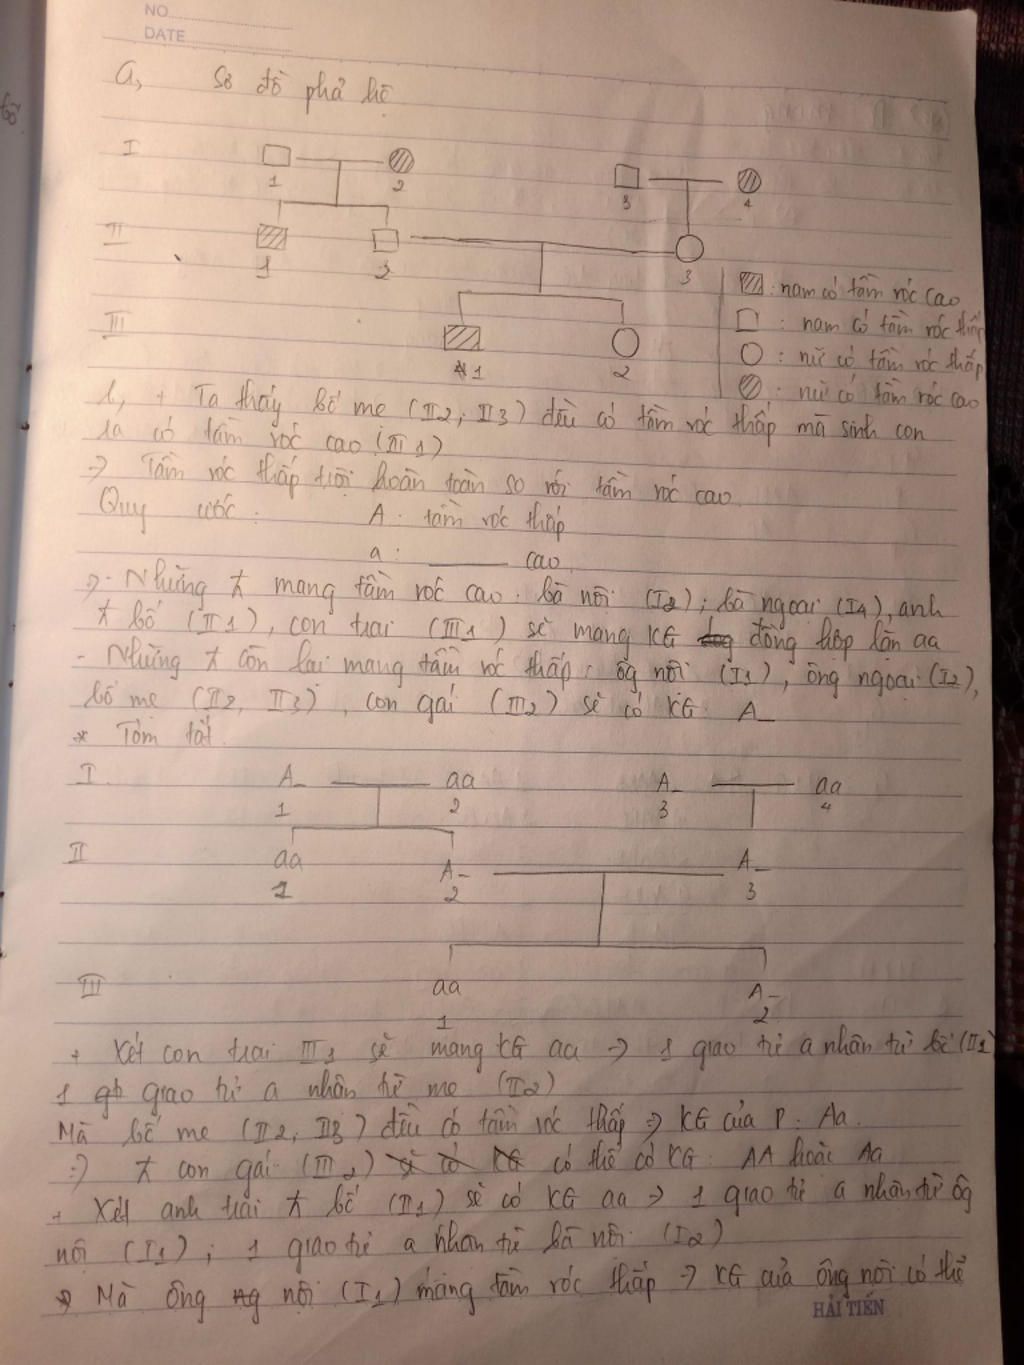 NO
DATE
a, Sơ đồ phả hệ
I
1 2 3 4
II
1 2 3
: nam có tầm vóc cao
: nam có tầm vóc thấp
III
: nữ có tầm vóc thấp
1 2
: nữ có tầm vóc cao
b, + Ta thấy bố mẹ (II2, II3) đều có tầm vóc thấp mà sinh con
ra có tầm vóc cao (III1)
=> Tầm vóc thấp trội hoàn toàn so với tầm vóc cao
Quy ước: A: tầm vóc thấp
a: cao
=> - Những mang tầm vóc cao: bà nội (I2); bà ngoại (I4), anh
bố (II1), con trai (III1) sẽ mang KG đồng hợp lặn aa
- Những còn lại mang tầm vóc thấp: ôg nội (I1), ông ngoại (I2),
bố mẹ (II2, II3), con gái (III2) sẽ có KG: A_
* Tóm tắt
I A_ aa A_ aa
1 2 3 4
II aa A_ A_
1 2 3
III aa A_
1 2
+ Xét con trai III1 sẽ mang KG aa => 1 giao tử a nhận từ bố (II1)
1 giao tử a nhận từ mẹ (II2)
Mà bố mẹ (II2, II3) đều có tầm vóc thấp => KG của P: Aa.
=> con gái (III2) có thể có KG: AA hoặc Aa
+ Xét anh trai bố (II1) sẽ có KG aa => 1 giao tử a nhận từ ôg
nội (I1); 1 giao tử a nhận từ bà nội (I2)
Mà ông nội (I1) mang tầm vóc thấp => KG của ông nội có thể
HẢI TIẾN